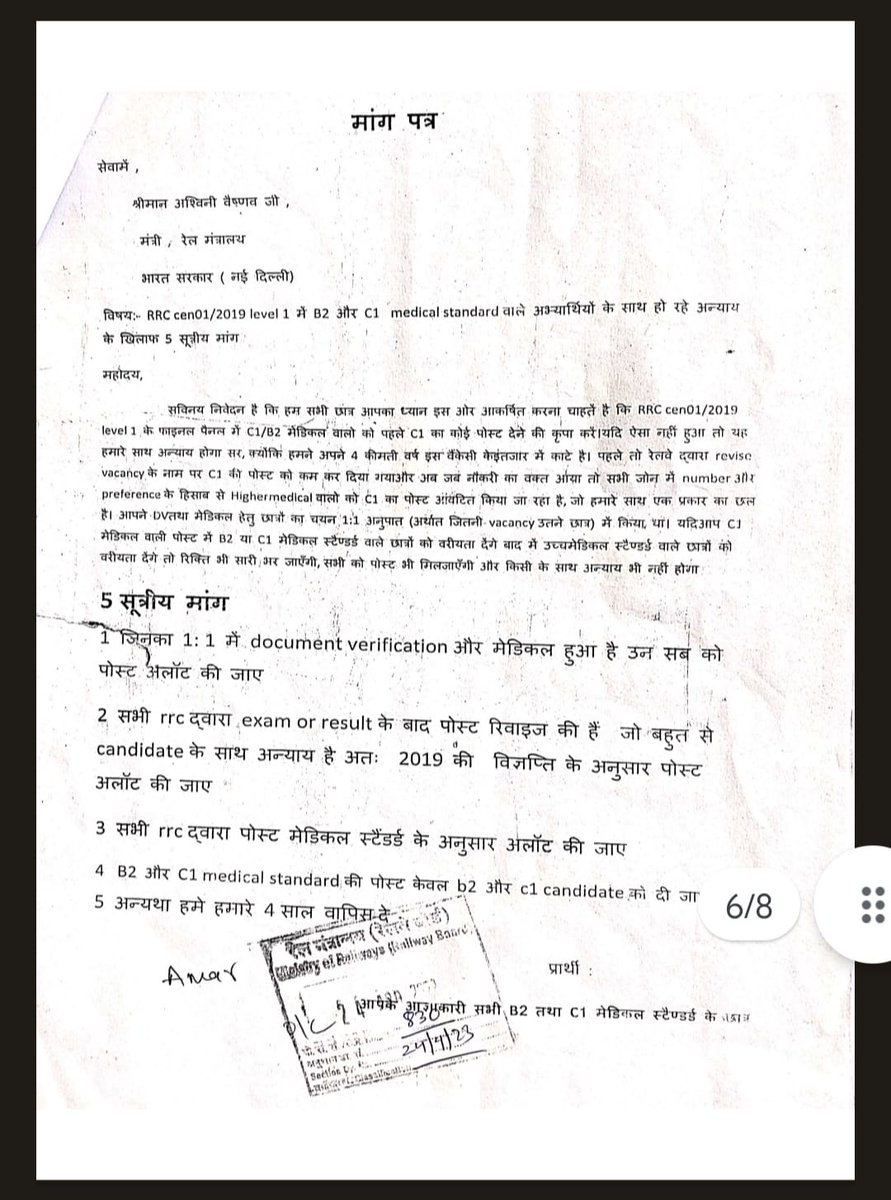 मांग पत्र
सेवामें ,
श्रीमान अश्विनी वैष्णव जी ,
मंत्री , रेल मंत्रालय
भारत सरकार ( नई दिल्ली)
विषय:- RRC cen01/2019 level 1 में B2 और C1 medical standard वाले अभ्यार्थियों के साथ हो रहे अन्याय
के खिलाफ 5 सूत्रीय मांग
महोदय,
सविनय निवेदन है कि हम सभी छात्र आपका ध्यान इस ओर आकर्षित करना चाहतें है कि RRC cen01/2019
level 1 के फाइनल पैनल में C1/B2 मेडिकल वालो को पहले C1 का कोई पोस्ट देने की कृपा करें।यदि ऐसा नहीं हुआ तो यह
हमारे साथ अन्याय होगा सर, क्योंकि हमने अपने 4 कीमती वर्ष इस वैकेंसी केइंतजार में काटे है। पहले तो रेलवे द्वारा revise
vacancy के नाम पर C1 की पोस्ट को कम कर दिया गयाऔर अब जब नौकरी का वक्त आया तो सभी जोन में number और
preference के हिसाब से Highermedical वालो को C1 का पोस्ट आंवटित किया जा रहा है, जो हमारे साथ एक प्रकार का छल
है। आपने DVतथा मेडिकल हेतु छात्रों का चयन 1:1 अनुपात (अर्थात जितनी vacancy उतने छात्र) में किया, था। यदिआप C1
मेडिकल वाली पोस्ट में B2 या C1 मेडिकल स्टैण्डर्ड वाले छात्रों को वरीयता देंगे बाद में उच्चमेडिकल स्टैण्डर्ड वाले छात्रों को
वरीयता देंगे तो रिक्ति भी सारी भर जाएँगी, सभी को पोस्ट भी मिलजाएँगी और किसी के साथ अन्याय भी नहीं होगा
5 सूत्रीय मांग
1 जिनका 1: 1 में document verification और मेडिकल हुआ है उन सब को
पोस्ट अलॉट की जाए
2 सभी rrc द्वारा exam or result के बाद पोस्ट रिवाइज की हैं जो बहुत से
candidate के साथ अन्याय है अतः 2019 की विज्ञप्ति के अनुसार पोस्ट
अलॉट की जाए
3 सभी rrc द्वारा पोस्ट मेडिकल स्टैंडर्ड के अनुसार अलॉट की जाए
4 B2 और C1 medical standard की पोस्ट केवल b2 और c1 candidate को दी जा
5 अन्यथा हमे हमारे 4 साल वापिस दे
6/8
रेल मंत्रालय (रेलवे बोर्ड)
Ministry of Railways (Railway Board)
Amar
प्रार्थी :
आपके आज्ञाकारी सभी B2 तथा C1 मेडिकल स्टैण्डर्ड के छात्र
830
24/4/23